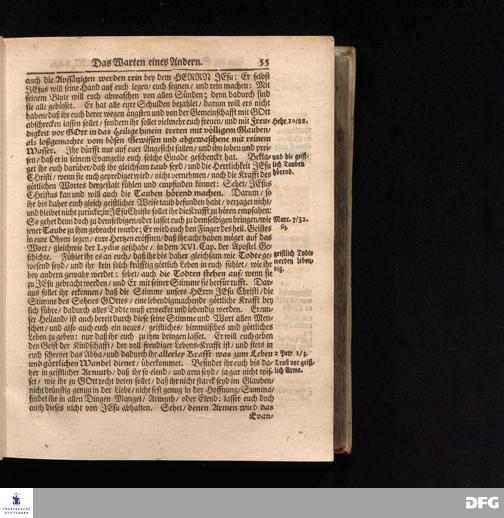 Das Warten eines Andern. 55
auch die Aussätzigen werden rein bey dem HERRN JEsu: Er selbst
JEsus will seine Hand auf euch legen/ euch segnen/ und rein machen: Mit
seinem Blute will euch abwaschen von allen Sünden; denn dadurch sind
sie alle gebüsset. Er hat alle eure Schulden bezahlet/ darum will ers nicht
haben/ daß ihr euch derer wegen ängsten und von der Gemeinschafft mit GOtt
abschrecken lassen sollet/ sondern ihr sollet vielmehr euch freuen/ und mit Freu-
digkeit vor GOtt in das Heilige hinein treten mit völligem Glauben/
als loßgemachte vom bösen Gewissen und abgewaschene mit reinem
Wasser. Ihr dürfft nur auf euer Angesicht fallen/ und ihn loben und prei-
sen/ daß er in seinem Evangelio euch solche Gnade geschenckt hat.
Hebr. 10/22.
und die geist-
lich Tauben
hörend.
Christi/ wenn sie euch geprediget wird/ nicht vernehmen/ noch die Krafft des
göttlichen Wortes dergestalt fühlen und empfinden könnet: Sehet/ JEsus
Christus kan und will auch die Tauben hörend machen. Darum/ so
ihr bis daher euch gleich geistlicher Weise taub befunden habt/ verzaget nicht/
und bleibet nicht zurücke, in JEsu Christo sollet ihr die Krafft zu hören empfahen:
So gehet denn doch zu demselbigen/ oder lasset euch zu demselbigen bringen/ wie
jener Taube zu ihm gebracht wurde; Er wird euch den Finger des heil. Geistes
in eure Ohren legen/ eure Hertzen eröffnen/ daß ihr acht haben möget auf das
Wort/ gleichwie der Lydiä geschahe/ in dem XVI. Cap. der Apostel Ge-
schichte. Fühlet ihr es an euch/ daß ihr bis daher gleichsam wie Todte ge-
wesend seyd/ und ihr kein solch kräfftig göttlich Leben in euch fühlet/ wie ihr
bey andern gewahr werdet: sehet/ auch die Todten stehen auf/ wenn sie
zu JEsu gebracht werden/ und Er mit seiner Stimme sie herfür rufft. Dar-
aus sollet ihr erkennen/ daß die Stimme unsers HErrn JEsu Christi/ die
Stimme des Sohnes GOttes/ eine lebendigmachende göttliche Krafft bey
sich führe/ dadurch alles Todte muß erwecket und lebendig werden.
Marc. 7/32.
geistlich Todte
werden leben-
dig.
ser Heiland ist auch bereit durch diese seine Stimme und Wort allen Men-
schen/ und also auch euch ein neues/ geistliches/ himmlisches und göttliches
Leben zu geben: nur daß ihr euch zu ihm bringen lasset. Er will euch geben
den Geist der Kindschafft/ der voll freudiger Lebens-Krafft ist/ und stets in
euch schreyet das Abba/ und dadurch ihr allerley Krafft was zum Leben
und göttlichen Wandel dienet/ überkommet. Befindet ihr euch bis da-
her in geistlicher Armuth/ daß ihr so elend/ und arm seyd/ ja gar nicht wis-
set/ wie ihr zu GOtt recht beten sollet/ daß ihr nicht starck seyd im Glauben/
nicht brünstig genug in der Liebe/ nicht fest genug in der Hoffnung/ Summa/
findet ihr in allen Dingen Mangel/ Armuth/ oder Elend: lasset euch doch
auch dieses nicht von JEsu abhalten. Sehet/ denen Armen wird das
2 Petr. 1/3.
Trost vor geist-
lich Arme.
Evan-
FRANCKESCHE
STIFTUNGEN
DFG